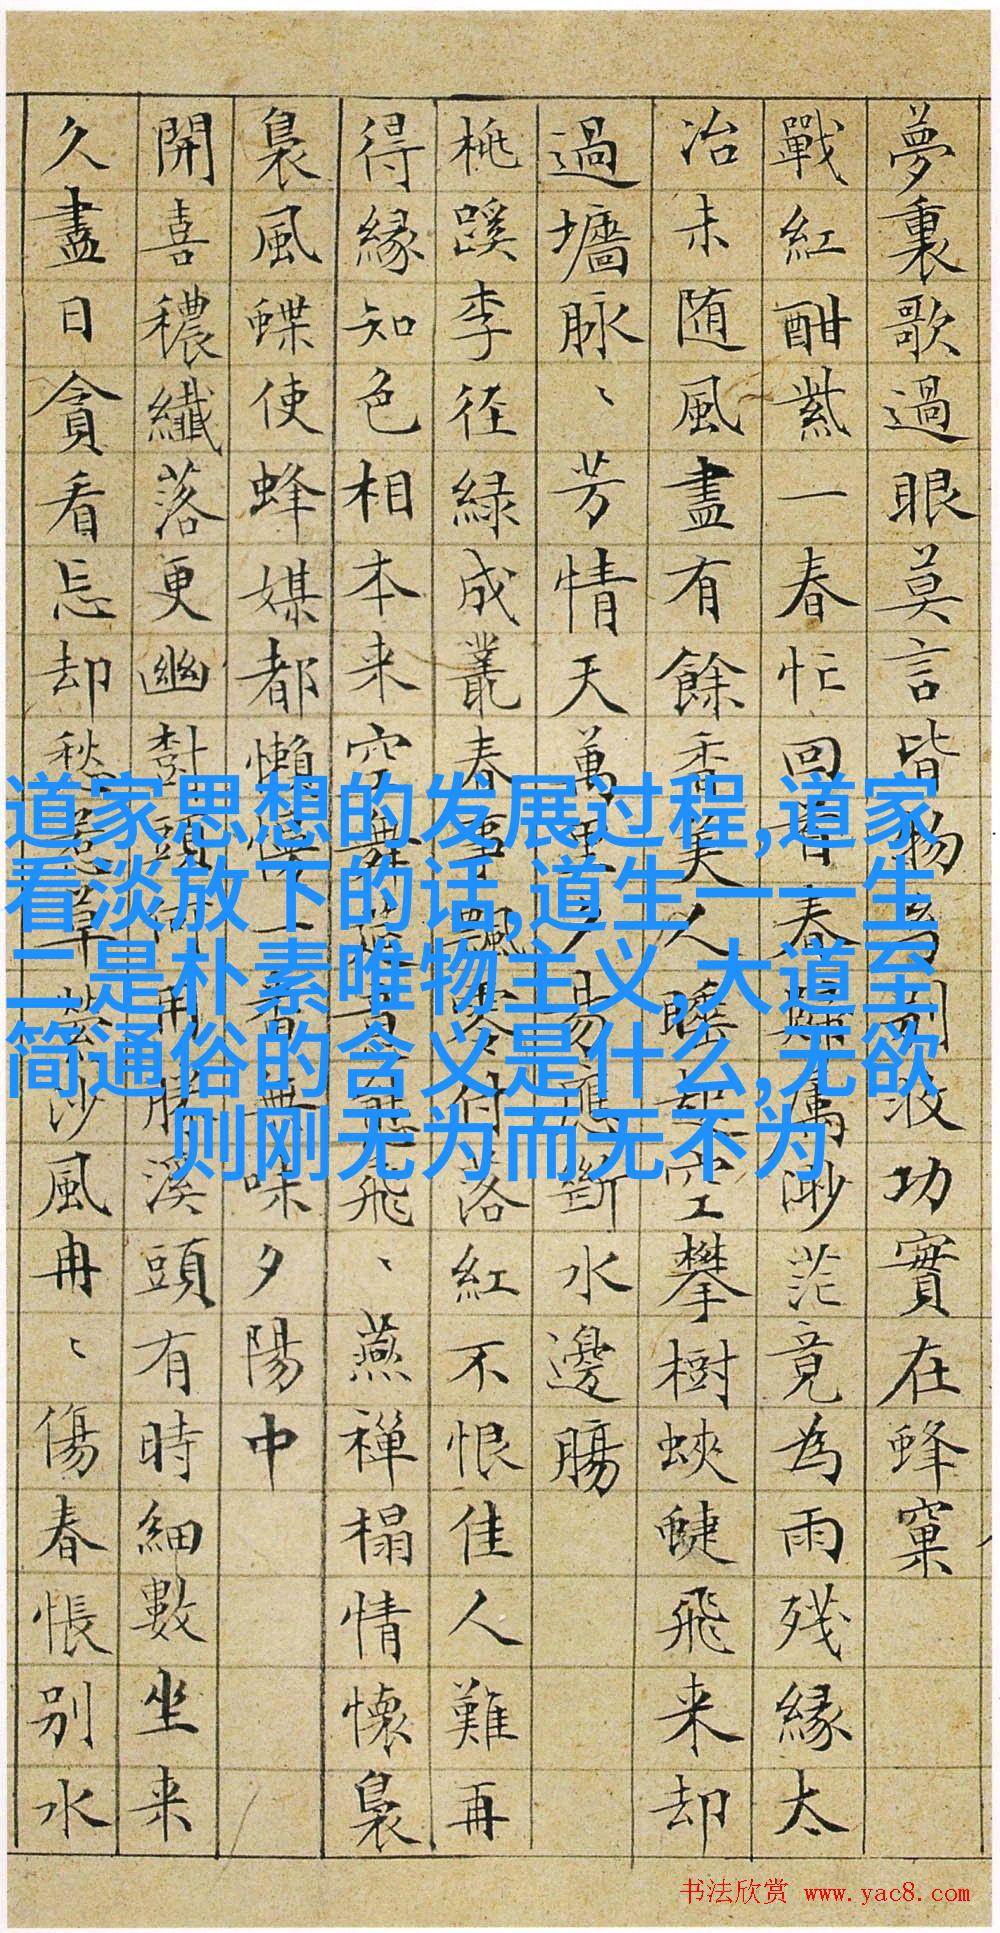 夢裏歌過眼莫言皆物為 液功實在蜂窠
戰紅酣紫一春忙回首春歸屬渺茫竟為雨殘緣太
冶未随風盡有餘香美人睡起空攀樹蛺蜨飛来却
過墻脉、芳情天萬里夕陽應斷水邊腸
桃蹊李径緑成叢春事飄零付落紅不恨佳人難再
得緣知色相本来空舞 飛飛、燕禅榻情懷裊
裊風蝶使蜂媒都懶 一 無味夕陽中
開喜穠纖落更幽對頭 用勝溪頭有時細數坐来
久盡日貪看忘却愁惹草縈沙風冉、傷春悵别水
道家思想的发展过程,道家
看淡放下的话,道生一一生
二是朴素唯物主义,大道至
简通俗的含义是什么,无欲
则刚无为而无不为
书法欣赏 www.yac8.com